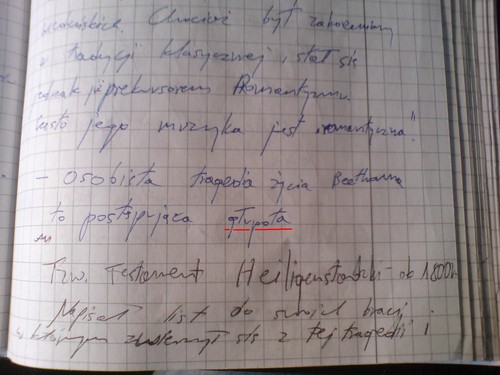 Chociaż był zakorzeniony
w tradycji klasycznej, stał się
jednak prekursorem Romantyzmu
jego muzyka jest "romantyczna".
- Osobista tragedia życia Beethovena
to postępująca głupota
Tzw. Testament Heiligenstadzki - ok 1800r.
Napisał list do swoich braci,
w którym zwierzył się z tej tragedii i